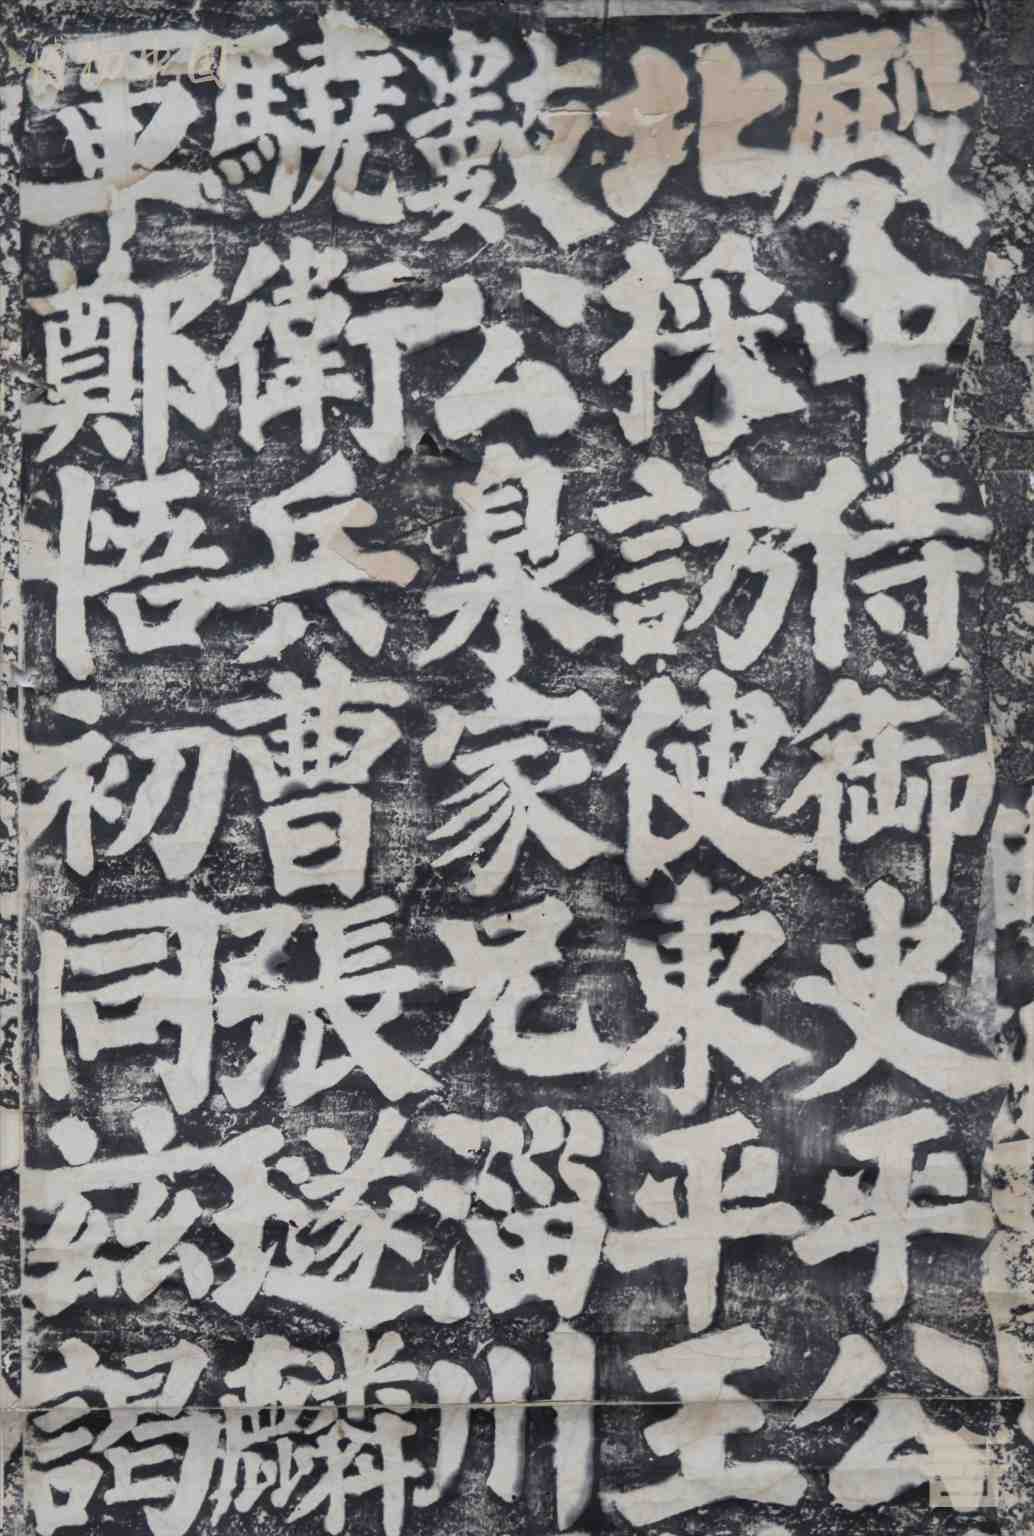 殿中侍御史平公
北採訪使東平王
數公皋家兄淄川
驍衛兵曹張璲麟
軍鄭悟初同茲謁